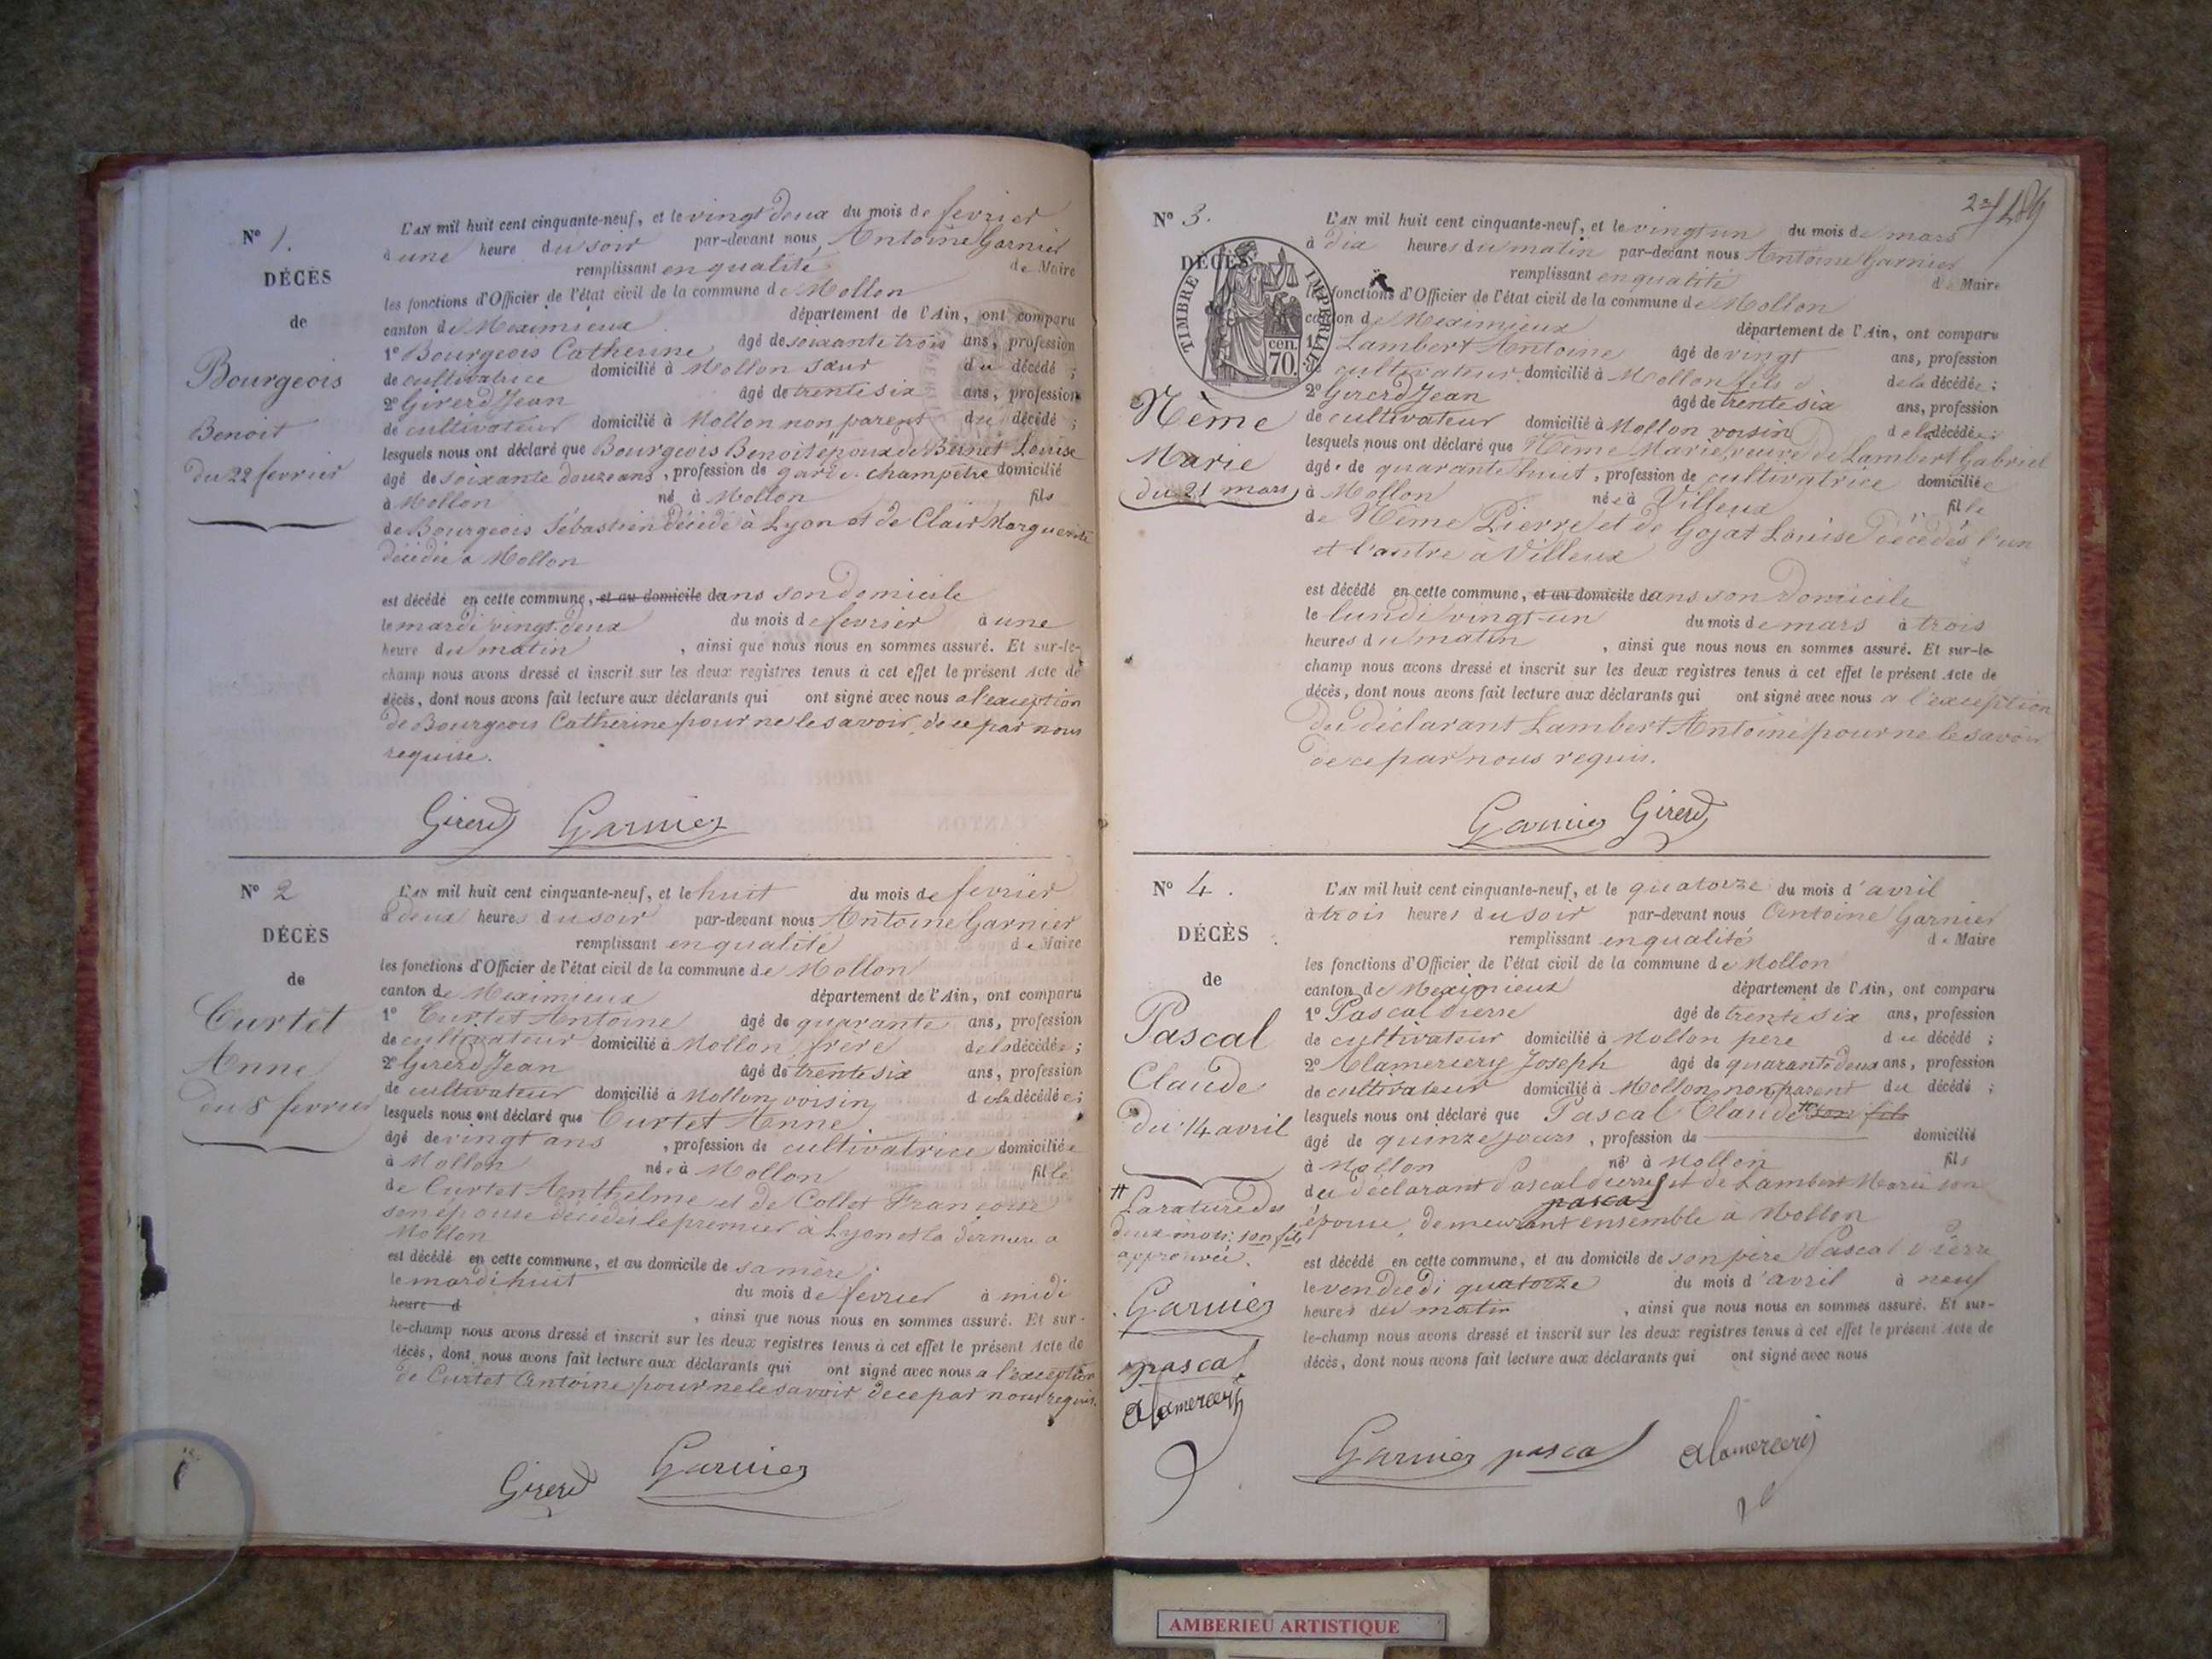 Nº 1.
DÉCÈS
de
Bourgeois
Benoit
du 22 fevrier
L'AN mil huit cent cinquante-neuf, et le vingt deux du mois de fevrier
à une heure du soir par-devant nous Antoine Garnier
remplissant en qualité de Maire
les fonctions d'Officier de l'état civil de la commune de Mollon
canton de Meximieux département de l'Ain, ont comparu
1º Bourgeois Catherine âgé de soixante trois ans, profession
de cultivatrice domicilié à Mollon sœur du décédé ;
2º Girerd Jean âgé de trente six ans, profession
de cultivateur domicilié à Mollon non parent du décédé ;
lesquels nous ont déclaré que Bourgeois Benoit époux de Bernet Louise
âgé de soixante douze ans, profession de garde champêtre domicilié
à Mollon né à Mollon fils
de Bourgeois Sébastien décédé à Lyon et de Clair Marguerite
décédée a Mollon
est décédé en cette commune, et au domicile dans son domicile
le mardi vingt deux du mois de fevrier à une
heure du matin , ainsi que nous nous en sommes assuré. Et sur-le-
champ nous avons dressé et inscrit sur les deux registres tenus à cet effet le présent Acte de
décès, dont nous avons fait lecture aux déclarants qui ont signé avec nous a l'exception
de Bourgeois Catherine pour ne le savoir, de ce par nous
requise.
Girerd Garnier
Nº 2
DÉCÈS
de
Curtet
Anne
du 8 fevrier
L'AN mil huit cent cinquante-neuf, et le huit du mois de fevrier
à deux heures du soir par-devant nous Antoine Garnier
remplissant en qualité de Maire
les fonctions d'Officier de l'état civil de la commune de Mollon
canton de Meximieux département de l'Ain, ont comparu
1º Curtet Antoine âgé de quarante ans, profession
de cultivateur domicilié à Mollon, frere de la décédée ;
2º Girerd Jean âgé de trente six ans, profession
de cultivateur domicilié à Mollon voisin de la décédée ;
lesquels nous ont déclaré que Curtet Anne
âgé de vingt ans , profession de cultivatrice domiciliée
à Mollon née à Mollon fille
de Curtet Anthelme et de Collet Françoise
son épouse décédés le premier à Lyon et la derniere a
Mollon
est décédé en cette commune, et au domicile de sa mère
le mardi huit du mois de fevrier à midi
heure d , ainsi que nous nous en sommes assuré. Et sur-
le-champ nous avons dressé et inscrit sur les deux registres tenus à cet effet le présent Acte de
décès, dont nous avons fait lecture aux déclarants qui ont signé avec nous a l'exception
de Curtet Antoine pour ne le savoir de ce par nous requis.
Girerd Garnier
Nº 3.
DÉCÈS
de
TIMBRE IMPÉRIAL
cen.
70.
Nème
Marie
du 21 mars
L'AN mil huit cent cinquante-neuf, et le vingt un du mois de mars
à dix heures du matin par-devant nous Antoine Garnier
remplissant en qualité de Maire
les fonctions d'Officier de l'état civil de la commune de Mollon
canton de Meximieux département de l'Ain, ont comparu
1º Lambert Antoine âgé de vingt ans, profession
de cultivateur domicilié à Mollon fils de la décédée ;
2º Girerd Jean âgé de trente six ans, profession
de cultivateur domicilié à Mollon voisin de la décédée ;
lesquels nous ont déclaré que Nème Marie veuve de Lambert Gabriel
âgée de quarante huit , profession de cultivatrice domiciliée
à Mollon née à Villeux fille
de Nème Pierre et de Gojat Louise décédés l'un
et l'autre à Villeux
est décédé en cette commune, et au domicile dans son domicile
le lundi vingt-un du mois de mars à trois
heures du matin , ainsi que nous nous en sommes assuré. Et sur-le-
champ nous avons dressé et inscrit sur les deux registres tenus à cet effet le présent Acte de
décès, dont nous avons fait lecture aux déclarants qui ont signé avec nous a l'exception
du déclarant Lambert Antoine pour ne le savoir
de ce par nous requis.
Garnier Girerd
Nº 4.
DÉCÈS
de
Pascal
Claude
du 14 avril
# La rature des
deux mots: son fils
approuvée.
Garnier
pascal
Alamercery
L'AN mil huit cent cinquante-neuf, et le quatorze du mois d'avril
à trois heures du soir par-devant nous Antoine Garnier
remplissant en qualité de Maire
les fonctions d'Officier de l'état civil de la commune de Mollon
canton de Meximieux département de l'Ain, ont comparu
1º Pascal Pierre âgé de trente six ans, profession
de cultivateur domicilié à Mollon père du décédé ;
2º Alamercery Joseph âgé de quarante deux ans, profession
de cultivateur domicilié à Mollon, non parent du décédé ;
lesquels nous ont déclaré que Pascal Claude # son fils
âgé de quinze jours , profession de domicilié
à Mollon né à Mollon fils
du déclarant Pascal Pierre et de Lambert Marie son
pascal
épouse, demeurant ensemble a Mollon
est décédé en cette commune, et au domicile de son père Pascal Pierre
le vendredi quatorze du mois d'avril à neuf
heures du matin , ainsi que nous nous en sommes assuré. Et sur-
le-champ nous avons dressé et inscrit sur les deux registres tenus à cet effet le présent Acte de
décès, dont nous avons fait lecture aux déclarants qui ont signé avec nous
Garnier pascal Alamercery
AMBERIEU ARTISTIQUE